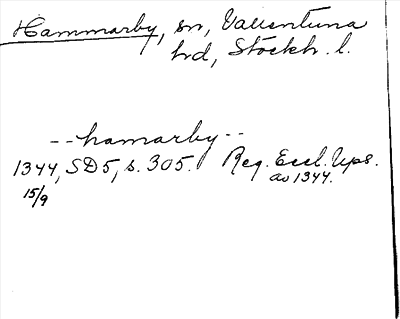 Hammarby, sn, Vallentuna
hrd, Stockh. l.
-- hamarby --
1344, SD5, s. 305. Reg. Eccl. Ups.
av 1344.
15/9